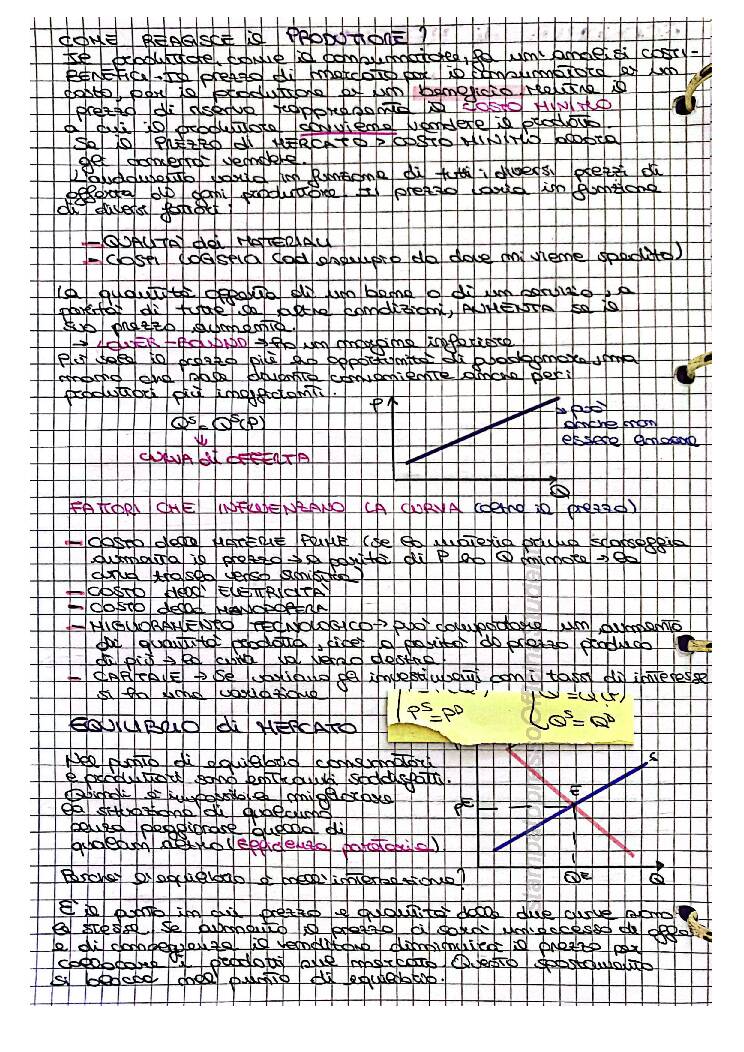 COME REAGISCE il PRODUTTORE?
Il produttore, come il consumatore, fa un'analisi COSTI-
BENEFICI. Il prezzo di mercato per il consumatore è un
costo, per il produttore è un beneficio. Mentre il
prezzo di riserva rappresenta il COSTO MINIMO
a cui il produttore conviene vendere il prodotto
Se il PREZZO di MERCATO > COSTO MINIMO allora
gli converrà vendere.
L'andamento varia in funzione di tutti i diversi prezzi di
offerta di ogni produttore. Il prezzo varia in funzione
di diversi fattori:
- QUALITÀ dei MATERIALI
- COSTI LOGISTICA (ad esempio da dove mi viene spedito)
La quantità offerta di un bene o di un servizio, a
parità di tutte le altre condizioni, AUMENTA se il
suo prezzo aumenta.
→ LOWER-BOUND → ha un margine inferiore
Più sale il prezzo più ho opportunità di guadagnare, ma
mano che sale diventa conveniente anche per i
produttori più inefficienti.
Qˢ = Qˢ(P)
↓
CURVA di OFFERTA
P
→ può
anche non
essere lineare
Q
FATTORI CHE INFLUENZANO LA CURVA (oltre il prezzo)
- COSTO delle MATERIE PRIME (se la materia prima scarseggia
aumenta il prezzo → a parità di P ho Q minore → la
curva trasla verso sinistra)
- COSTO dell'ELETTRICITÀ
- COSTO della MANODOPERA
- MIGLIORAMENTO TECNOLOGICO → può comportare un aumento
di quantità prodotta, cioè a parità di prezzo produco
di più → la curva va verso destra.
- CAPITALE → Se variano gli investimenti con i tassi di interesse
si ha una variazione
EQUILIBRIO di MERCATO
Pˢ = Pᴰ
Qˢ = Qᴰ
Nel punto di equilibrio consumatori
e produttori sono entrambi soddisfatti.
Quindi è impossibile migliorare
la situazione di qualcuno
senza peggiorare quella di
qualcun altro (efficienza paretiana)
S
E
Pᴱ
Qᴱ
Q
Perché l'equilibrio è nell'intersezione?
È il punto in cui prezzo e quantità delle due curve sono
le stesse. Se aumento il prezzo ci sarà un eccesso di offerta
e di conseguenza il venditore diminuirà il prezzo per
collocare i prodotti sul mercato. Questo spostamento
si blocca nel punto di equilibrio.